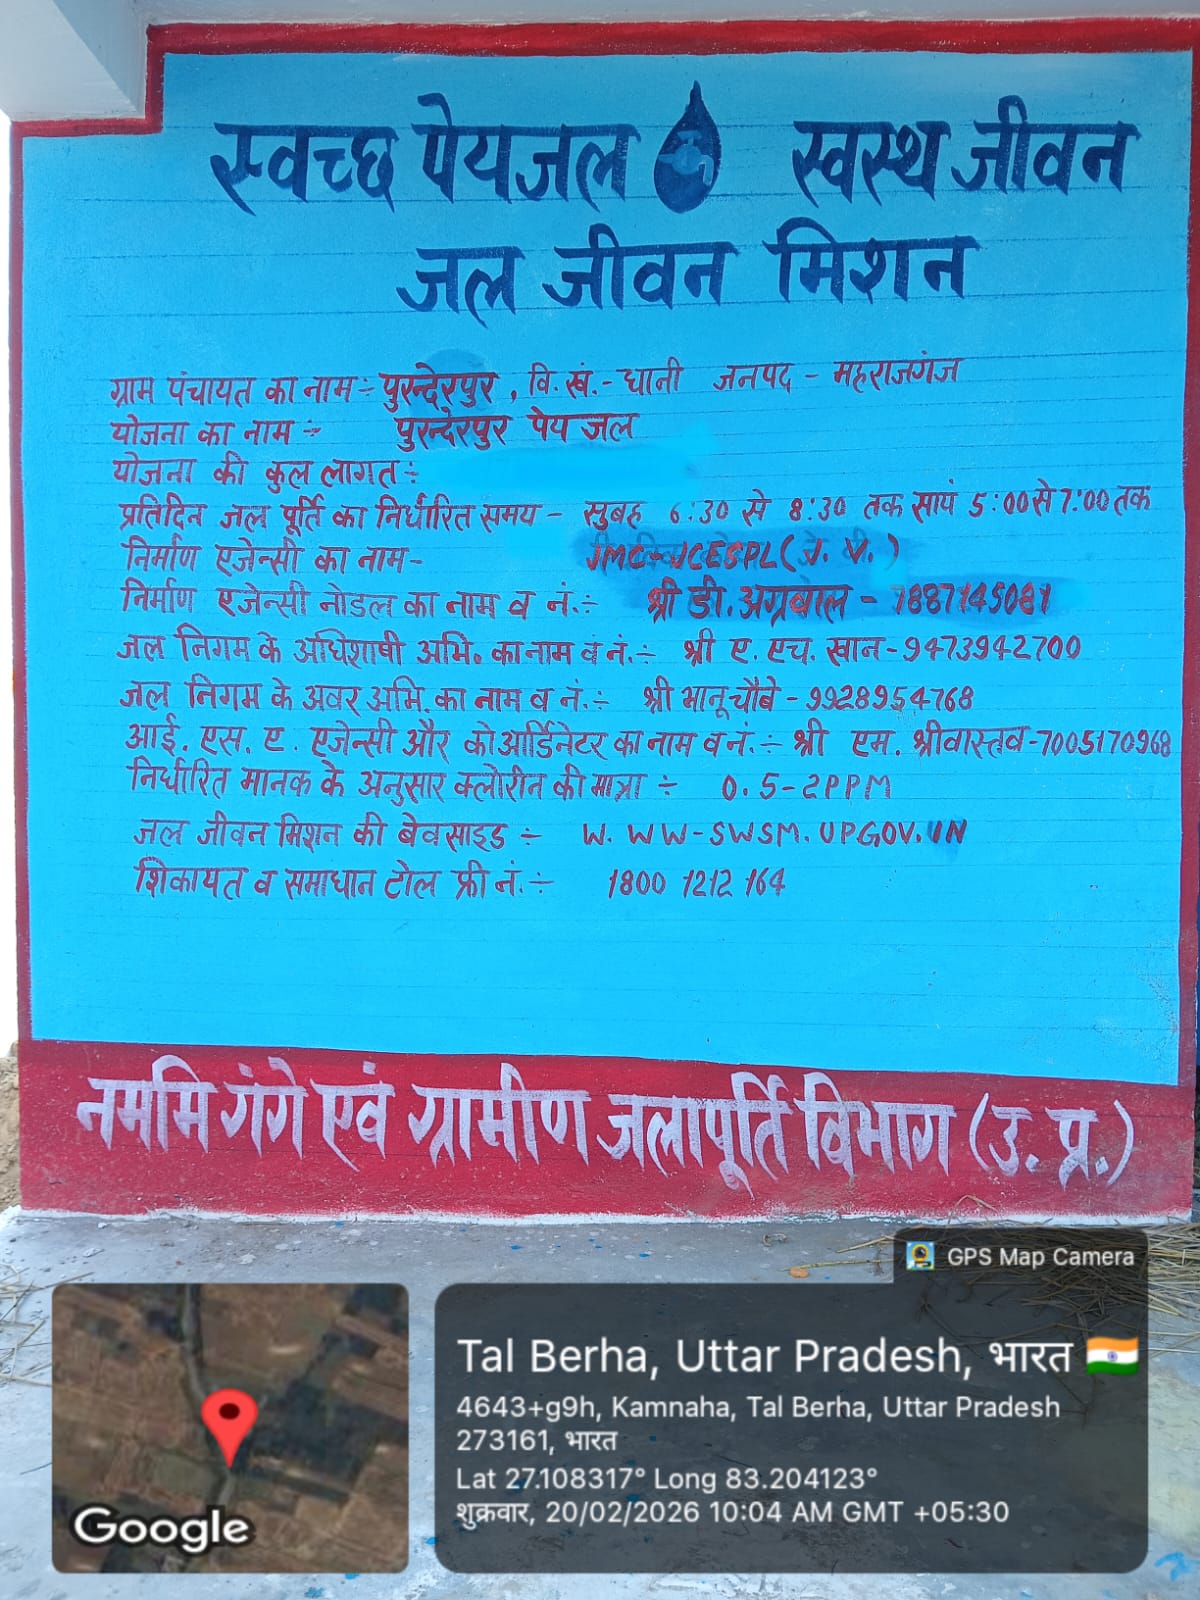 स्वच्छ पेयजल स्वस्थ जीवन
जल जीवन मिशन
ग्राम पंचायत का नाम÷ पुरन्देरपुर, वि.खं.- धानी जनपद - महराजगंज
योजना का नाम ÷ पुरन्देरपुर पेय जल
योजना की कुल लागत÷
प्रतिदिन जल पूर्ति का निर्धारित समय - सुबह 6:30 से 8:30 तक सायं 5:00 से 7:00 तक
निर्माण एजेन्सी का नाम- JMC-JCESPL(J.V.)
निर्माण एजेन्सी नोडल का नाम व नं.÷ श्री डी. अग्रवाल - 7887145081
जल निगम के अधिशाषी अभि. का नाम व नं.÷ श्री ए. एच. खान-9473942700
जल निगम के अवर अभि. का नाम व नं.÷ श्री भानू चौबे - 9928954768
आई. एस. ए. एजेन्सी और कोआर्डिनेटर का नाम व नं.÷ श्री एम. श्रीवास्तव-7005170968
निर्धारित मानक के अनुसार क्लोरीन की मात्रा ÷ 0.5-2PPM
जल जीवन मिशन की बेवसाइड ÷ W.WW-SWSM.UPGOV.IN
शिकायत व समाधान टोल फ्री नं.÷ 1800 1212 164
नममि गंगे एवं ग्रामीण जलापूर्ति विभाग (उ.प्र.)
GPS Map Camera
Tal Berha, Uttar Pradesh, भारत
4643+g9h, Kamnaha, Tal Berha, Uttar Pradesh
273161, भारत
Lat 27.108317° Long 83.204123°
शुक्रवार, 20/02/2026 10:04 AM GMT +05:30
Google